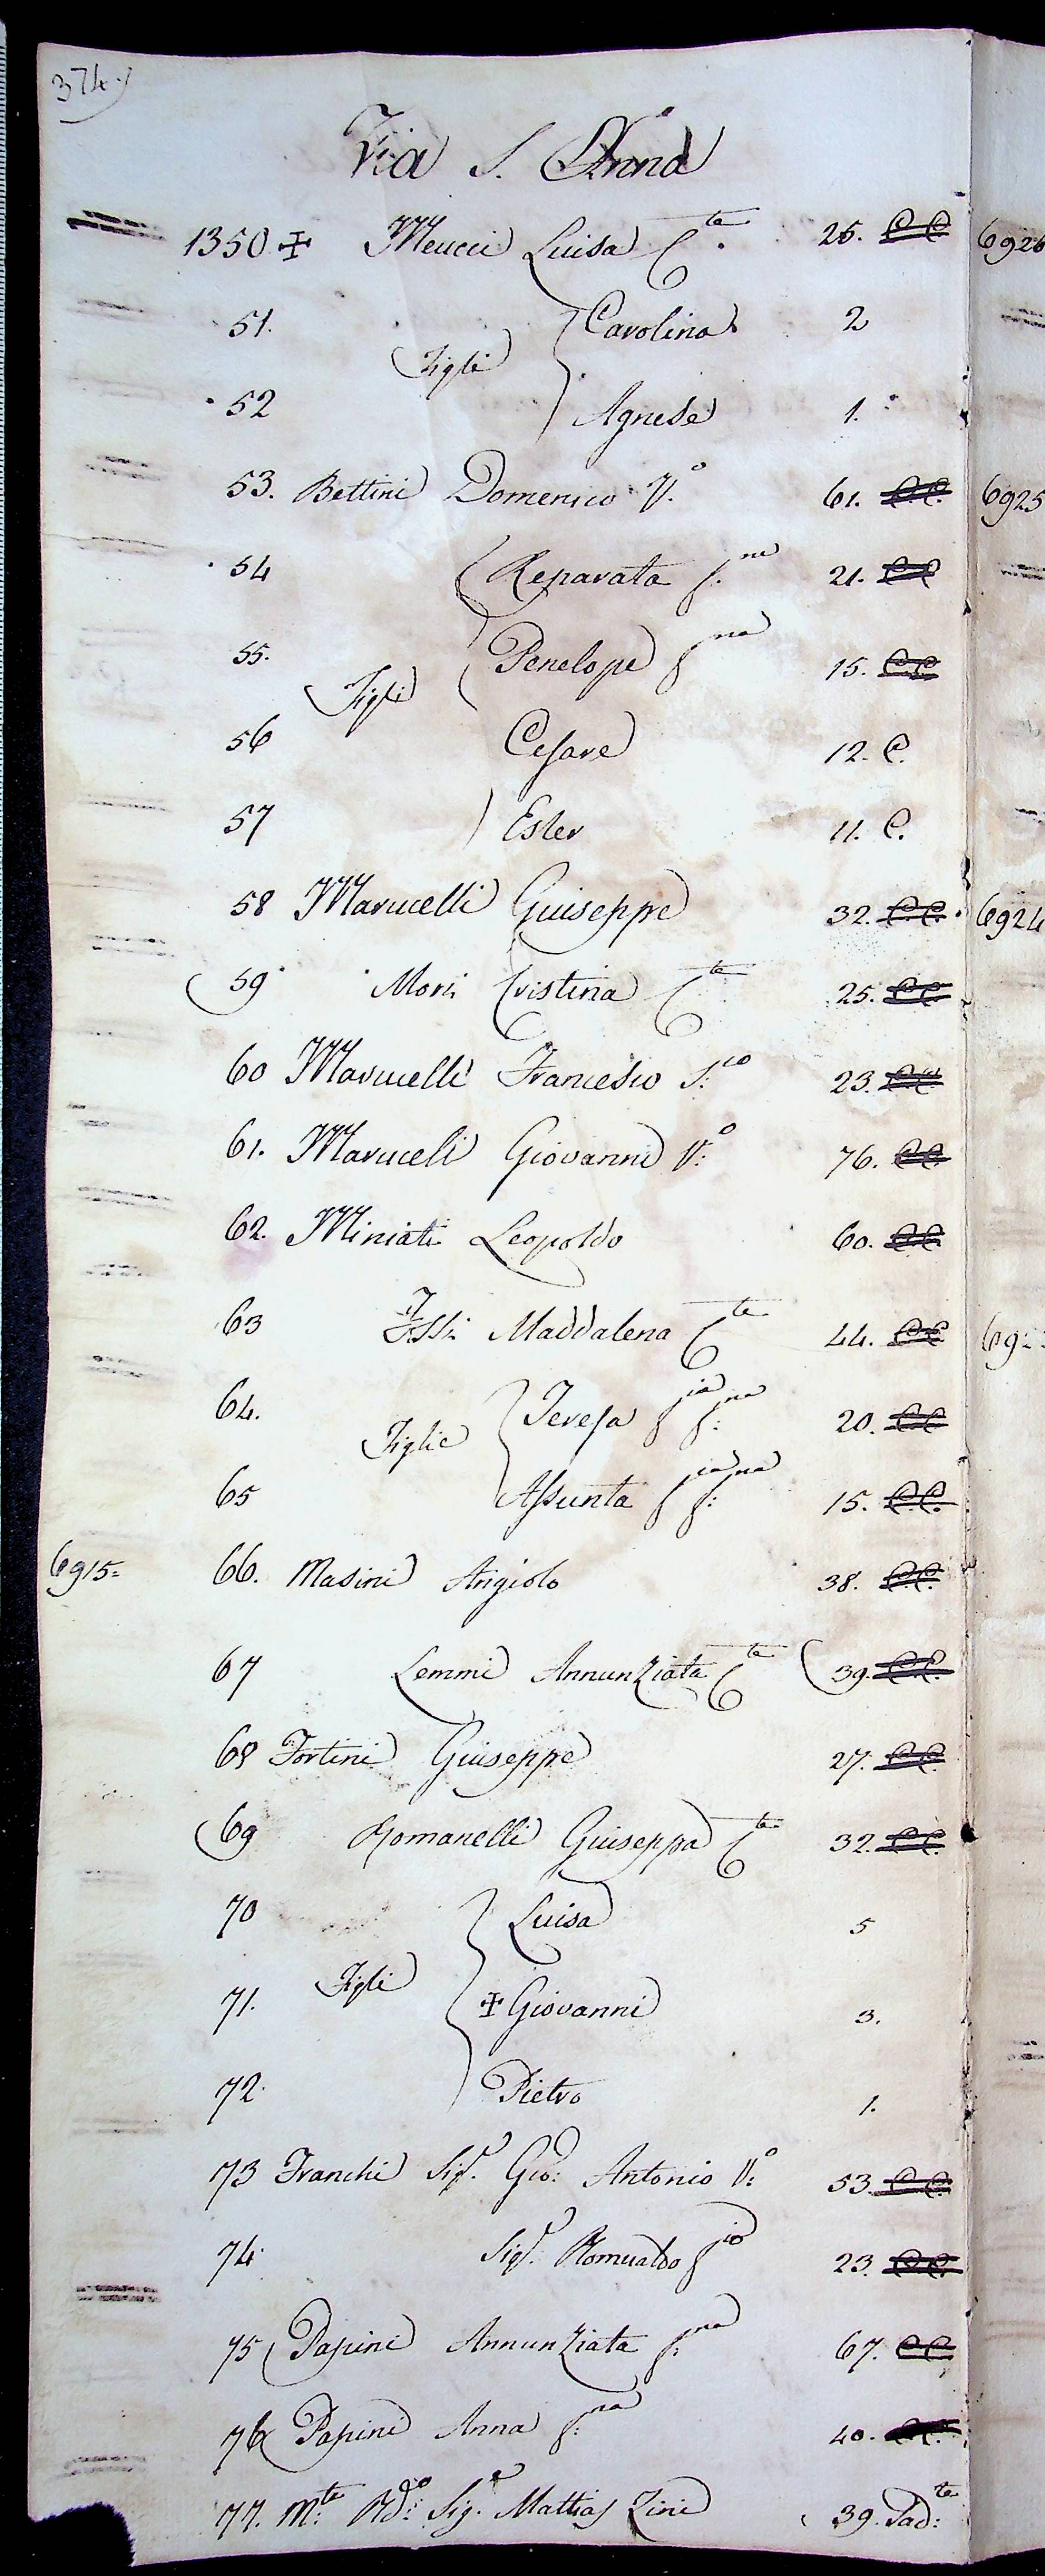 374.
Via S. Anna
1350 ✠ Meucci Luisa C.te 26. C C 6926
51. Carolina 2
Figli
52 Agnese 1.
53. Bettini Domenico V.o 61. C.C. 6925
54 Reparata f.na 21. C C
55. Penelope f.na 15. C.C
Figli
56 Cesare 12. C.
57 Ester 11. C.
58 Marucelli Giuseppe 32. C.C. 6924
59 Mori Cristina C.te 25. C C
60 Marucelli Francesco S:co 23. C.C.
61. Maruceli Giovanni V:o 76. C.C.
62. Miniati Leopoldo 60. C.C.
63 Maddalena C.te 44. C.C
64. Teresa f.na 20. C.C
Figlie
65 Assunta f.na 15. C.C.
6915= 66. Masini Angiolo 38. C.C.
67 Lemmi Annunziata C.te 39. C.C.
68 Fortini Giuseppe 27. C.C.
69 Romanelli Giuseppa C.te 32. C.C.
70 Luisa 5
Figli
71. ✠ Giovanni 3.
72. Pietro 1.
73 Franchi Sig.r Gio: Antonio V:o 53. C.C.
74. Sig.r Romualdo 23. C.C.
75 Papini Annunziata f.na 67. C C.
76 Papini Anna f:na 40. C.C.
77. M:to R:do Sig.e Mattias Zini 39. Sad:te